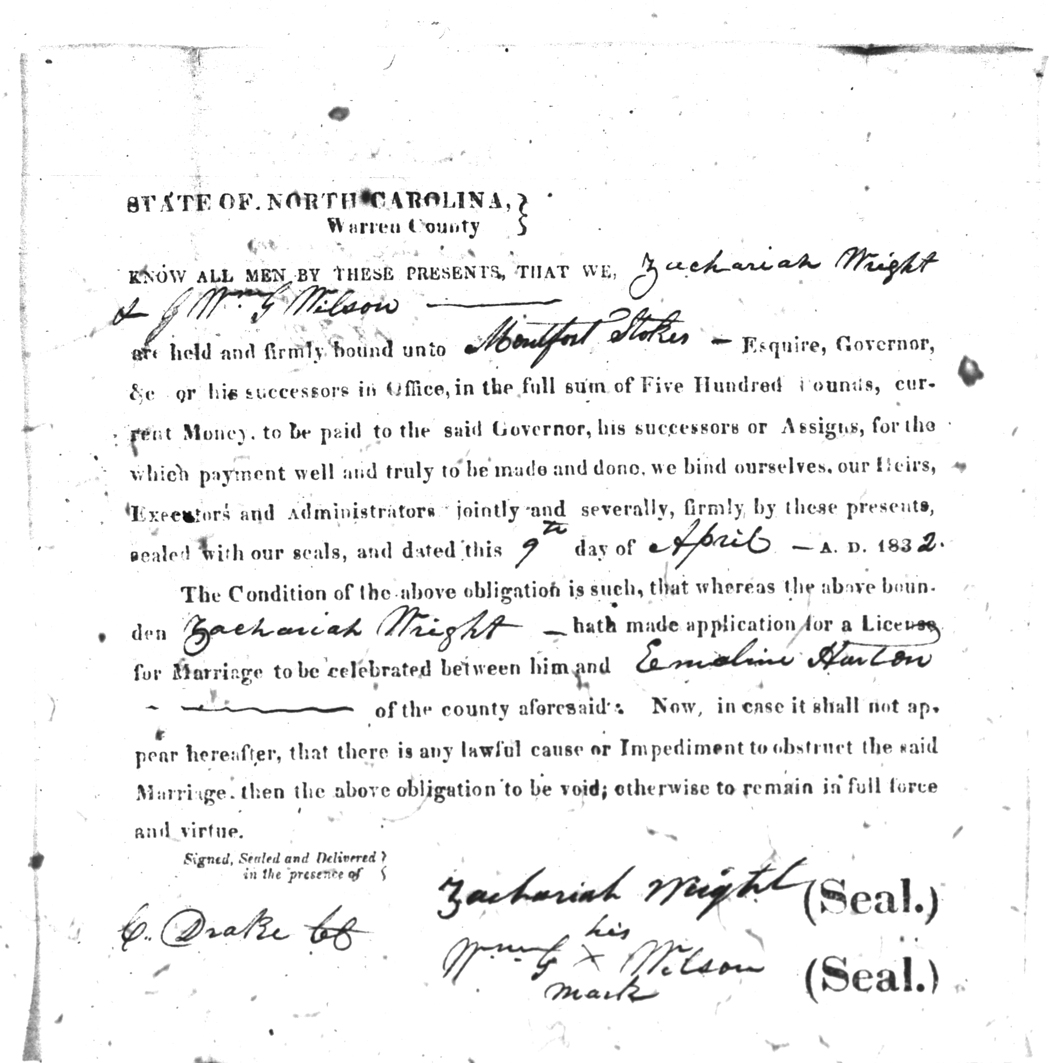 STATE OF NORTH CAROLINA,
Warren County
KNOW ALL MEN BY THESE PRESENTS, THAT WE, Zachariah Wright
& Wm G Wilson
are held and firmly bound unto Montfort Stokes — Esquire, Governor,
&c or his successors in Office, in the full sum of Five Hundred Pounds, cur-
rent Money, to be paid to the said Governor, his successors or Assigns, for the
which payment well and truly to be made and done, we bind ourselves, our Heirs,
Executors and Administrators jointly and severally, firmly by these presents,
sealed with our seals, and dated this 9th day of April — A. D. 1832.
The Condition of the above obligation is such, that whereas the above boun-
den Zachariah Wright — hath made application for a License
for Marriage to be celebrated between him and Emaline Harton
of the county aforesaid: Now, in case it shall not ap-
pear hereafter, that there is any lawful cause or Impediment to obstruct the said
Marriage, then the above obligation to be void; otherwise to remain in full force
and virtue.
Signed, Sealed and Delivered
in the presence of
C. Drake
Zachariah Wright (Seal.)
his
Wm G X Wilson (Seal.)
mark